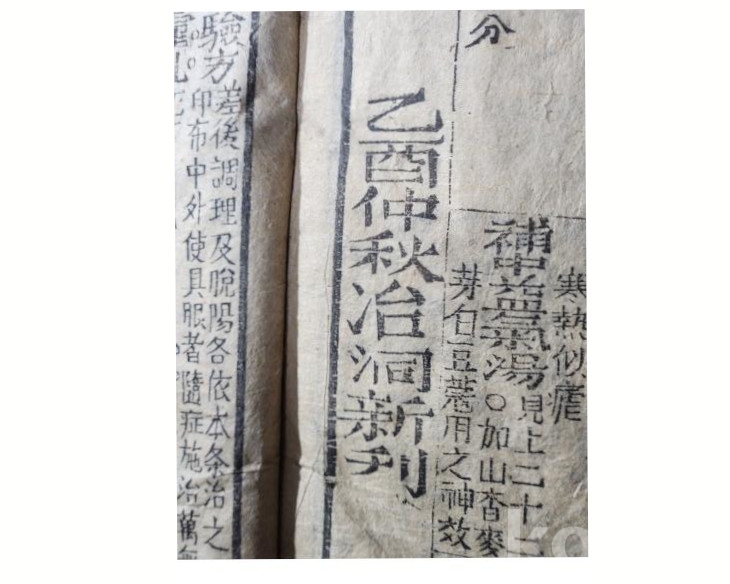 寒熱似瘧
補中益氣湯見上二十
○加山査麥
芽白豆蔲用之神效
分
乙酉仲秋冶洞新刊
驗方差後調理及脫陽各依本条治之
印布中外使具眼者隨症施治萬
ko